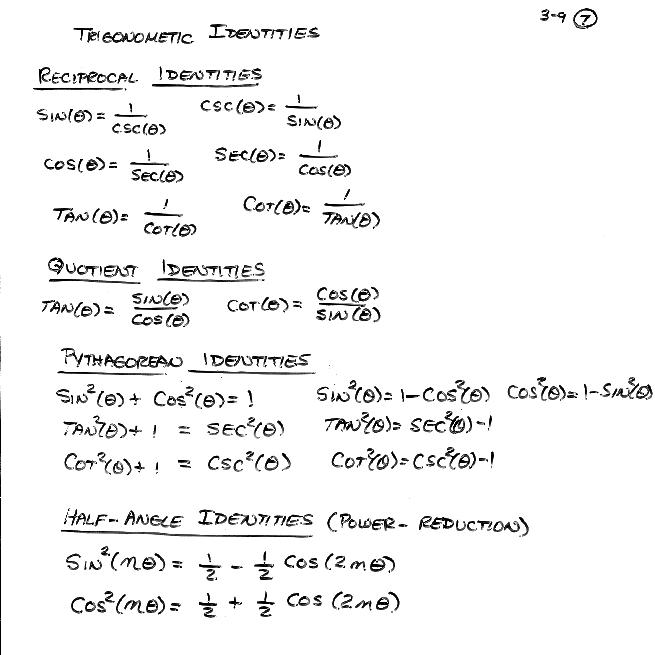 3-9 ⑦
TRIGONOMETRIC IDENTITIES
RECIPROCAL IDENTITIES
SIN(θ) = 1/CSC(θ) CSC(θ) = 1/SIN(θ)
COS(θ) = 1/SEC(θ) SEC(θ) = 1/COS(θ)
TAN(θ) = 1/COT(θ) COT(θ) = 1/TAN(θ)
QUOTIENT IDENTITIES
TAN(θ) = SIN(θ)/COS(θ) COT(θ) = COS(θ)/SIN(θ)
PYTHAGOREAN IDENTITIES
SIN²(θ) + COS²(θ) = 1 SIN²(θ) = 1 - COS²(θ) COS²(θ) = 1 - SIN²(θ)
TAN²(θ) + 1 = SEC²(θ) TAN²(θ) = SEC²(θ) - 1
COT²(θ) + 1 = CSC²(θ) COT²(θ) = CSC²(θ) - 1
HALF-ANGLE IDENTITIES (POWER-REDUCTION)
SIN²(mθ) = 1/2 - 1/2 COS(2mθ)
COS²(mθ) = 1/2 + 1/2 COS(2mθ)